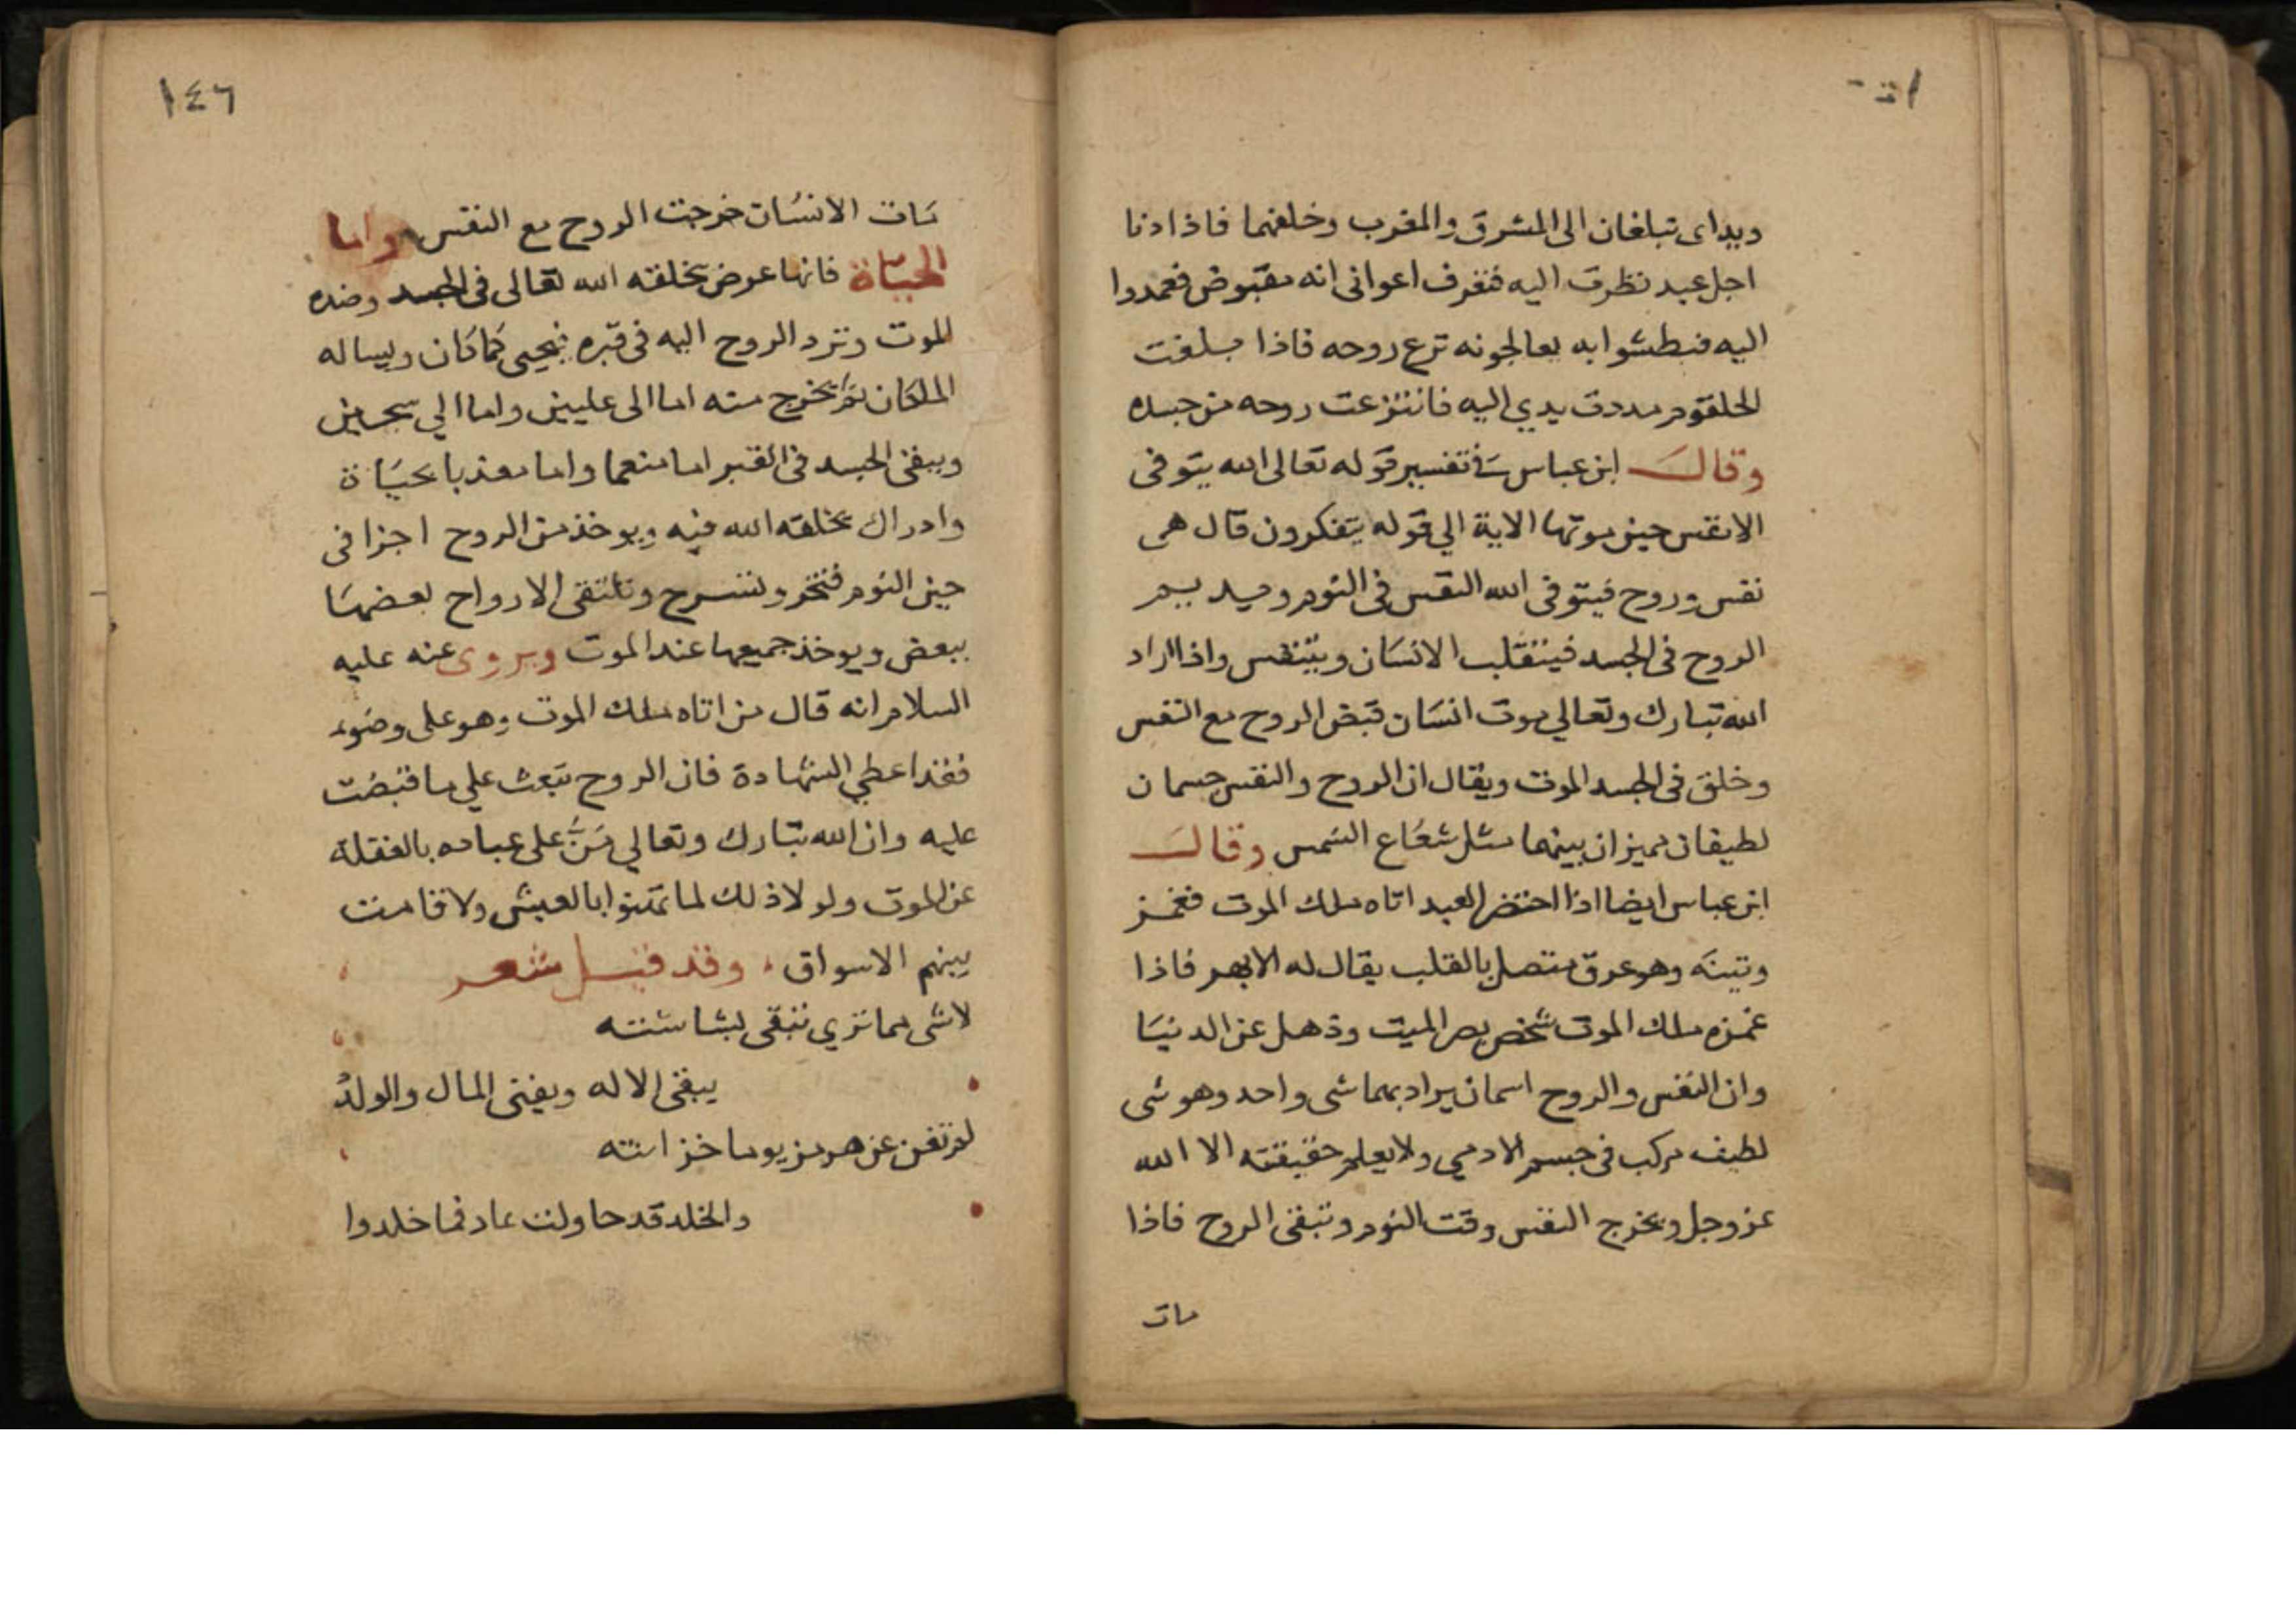 ويداى تبلغان الى المشرق والمغرب وخلفهما فاذا دنا
اجل عبد نظرت اليه فتعرف اعوانى انه مقبوض فعمدوا
اليه فبطشوا به يعالجونه نزع روحه فاذا بلغت
الحلقوم مددت يدي اليه فانتزعت روحه من جسده
وقال ابن عباس فى تفسير قوله تعالى الله يتوفى
الانفس حين موتها الاية الي قوله يتفكرون قال هى
نفس وروح فيتوفى الله النفس فى النوم
الروح فى الجسد فيتقلب الانسان ويتنفس واذا اراد
الله تبارك وتعالي موت انسان قبض الروح مع النفس
وخلق فى الجسد الموت ويقال ان الروح والنفس جسمان
لطيفان بينهما مثل شعاع الشمس وقال
ابن عباس ايضا اذا احتضر العبد اتاه ملك الموت فغمز
وتينه وهو عرق متصل بالقلب يقال له الابهر فاذا
غمزه ملك الموت شخص بصر الميت وذهل عن الدنيا
وان النفس والروح اسمان يراد بهما شى واحد وهو شى
لطيف مركب فى جسم الادمي ولا يعلم حقيقته الا الله
عز وجل وتخرج النفس وقت النوم وتبقى الروح فاذا
مات
١٤٦
مات الانسان خرجت الروح مع النفس واما
الحياة فانها عرض يخلقه الله تعالى فى الجسد وضده
الموت وترد الروح اليه فى قبره فيحيى كما كان ويساله
الملكان ثم تخرج منه اما الى عليين واما الي سجين
ويبقى الجسد فى القبر اما منعما واما معذبا بحياة
وادراك يخلقه الله فيه ويوخذ من الروح اجزا فى
حين النوم وتسرح وتلتقى الارواح بعضها
ببعض ويوخذ جميعها عند الموت ويروى عنه عليه
السلام انه قال من اتاه ملك الموت وهو على وضوء
فقد اعطي الشهادة فان الروح تبعث علي ما قبضت
عليه وان الله تبارك وتعالي منَّ على عباده بالغفلة
عن الموت ولولا ذلك لما تهنوا بالعيش ولا قامت
بينهم الاسواق وقد قيل شعر
لا شى مما تري تبقى بشاشته
يبقى الاله ويفنى المال والولدُ
لم تغن عن هرمز يوما خزائنه
والخلد قد حاولت عاد فما خلدوا